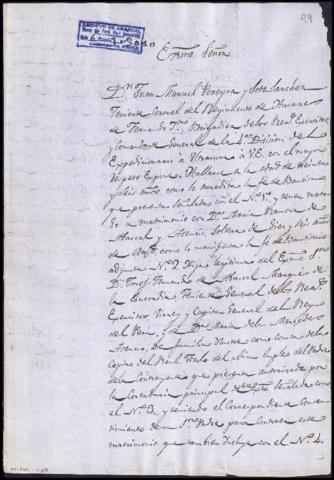 ARCHIVO DE ABASCAL
99
Exmo. Señor
Dn. Juan Manuel Pereyra y Soto Sanchez
Teniente Coronel del Regimiento de Husares
de Fernando 7mo, Brigadier de los Rs. Exercitos,
y Comandante General de la 1a. Division de la
Expedicionario a Ultramar a V.E. con el mayor
respeto Expone: Hallarse a la edad de treinta
y seis años como lo acredita la fe de Bautismo
que presenta señalada con el No. 1o. y tener trata
do su matrimonio con Da. Maria Ramona de
Abascal y Asencio, Soltera de diez y seis años
de edad, como lo manifiesta la fe de Bautismo
adjunta No. 2. Hija legitima del Exmo. Sr.
Dn. Josef Fernando de Abascal Marqués de
la Concordia, Teniente General de los Rs.
Exercitos, Virrey y Capitan General del Reyno
del Perú, y de Da. Maria de las Mercedes
Asencio, de familia Ilustre como consta de la
Copia del Real Titulo del ultimo empleo del Padre
de la Contrayente que presenta autorizada por
la Contaduria principal de señalada con
el No. 3o, y teniendo el Correspondiente Consen-
timiento de su Padre para Contraer este
matrimonio que tambien incluye con el No. 4o.